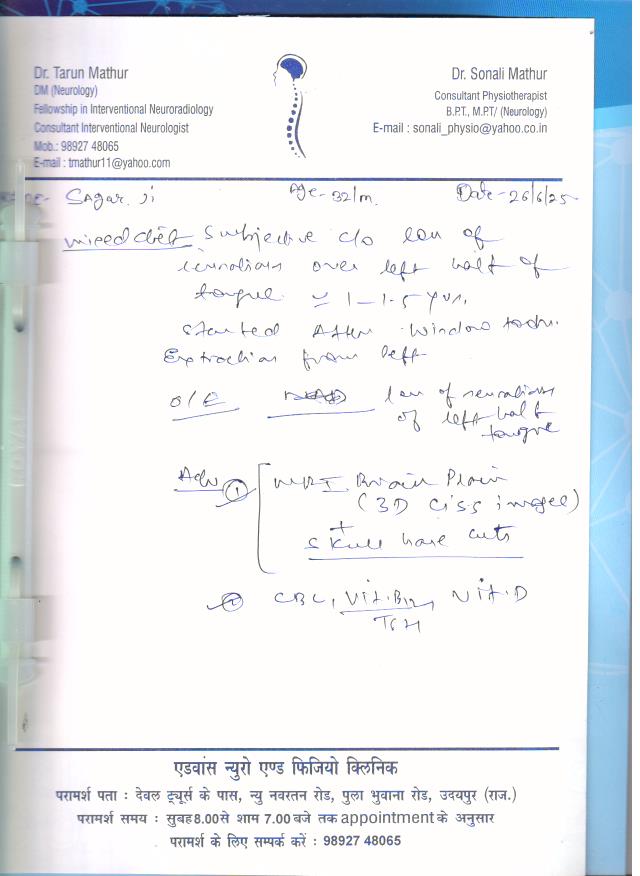 Dr. Tarun Mathur
DM (Neurology)
Fellowship in Interventional Neuroradiology
Consultant Interventional Neurologist
Mob.: 98927 48065
E-mail : tmathur11@yahoo.com
Dr. Sonali Mathur
Consultant Physiotherapist
B.P.T., M.P.T/ (Neurology)
E-mail : sonali_physio@yahoo.co.in
Sagar ji Age- 32/m. Date- 26/6/25
mixed diet Subjective c/o loss of
sensations over left half of
tongue 1-1.5 yrs.
started After Window tooth
Extraction from left
O/E loss of sensations
of left half
tongue
Adv ① MRI Brain Plain
(3D CISS images)
+
skull base cuts
② CBC, Vit.B12, Vit.D
TSH
एडवांस न्युरो एण्ड फिजियो क्लिनिक
परामर्श पता : देवल ट्यूर्स के पास, न्यु नवरतन रोड, पुला भुवाना रोड, उदयपुर (राज.)
परामर्श समय : सुबह 8.00 से शाम 7.00 बजे तक appointment के अनुसार
परामर्श के लिए सम्पर्क करें : 98927 48065